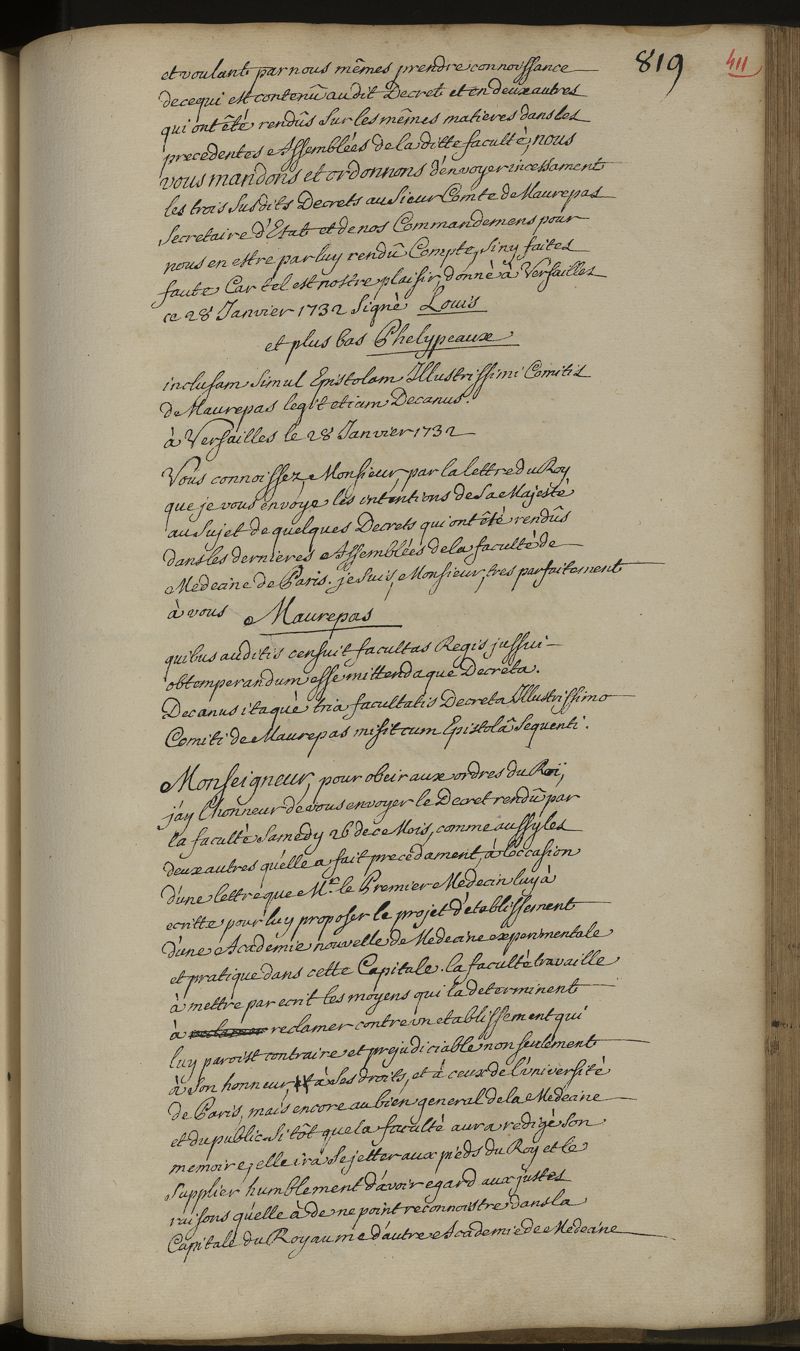 819
411
et voulant par nous mêmes prendre connoissance
de ce qui est contenû au dit Decret et en deux autres
qui ont êté rendûs sur les mêmes matieres dans les
precedentes Assemblées de la ditte faculté, nous
vous mandons et ordonnons d'envoyer incessament
les trois susdits Decrets au Sieur Comte de Maurepas
Secretaire d'Etat et de nos Commandemens pour
nous en estre par luy rendû Compte, si ny faites
faute Car tel est nostre plaisir donné à Versailles
ce 28 Janvier 1732 Signé Louis
et plus bas Phelypeaux
inclusam simul Epistolam Illustrissimi Comitis
de Maurepas legit etiam Decanus.
à Versailles le 28 Janvier 1732
Vous connoissez, Monsieur, par la lettre du Roy
que je vous envoye les intentions de Sa Majesté
au Sujet de quelques Decrets qui ont êté rendûs
dans les dernieres Assemblées de la faculté de
Medecine de Paris. je suis, Monsieur, tres parfaitement
à vous Maurepas
quibus auditis censuit facultas Regis jussui
obtemperandum esse mittendaque Decreta.
Decanus itaquè tria facultatis Decreta Illustrissimo
Comiti de Maurepas misit cum Epistolâ Sequenti.
Monseigneur, pour obeir aux ordres du Roi,
j'ay l'honneur de vous envoyer le Decret rendû par
la faculté Samedy 26 de ce Mois, comme aussy les
deux autres quelle a fait precedament, à l'occasion
d'une lettre que Mr. le Premier Medecin luy à
ecritte pour luy proposer le projet d'etablissement
d'une Academie nouvelle de Medecine experimentale
et pratique dans cette Capitale. la faculté travaille
à mettre par ecrit les moyens qui la determinent
à reclamer contre un etablissement qui
luy paroist contraire et prejudiciable non seulement
à son honneur, et à ses droits, et à ceux de l'université
de Paris, mais encore au bien general de la Medecine
et du public. Sitôt que la faculté aura redigé son
memoire, elle ira se jetter aux pieds du Roy et le
supplier humblement d'avoir egard aux justes
raisons qu'elle à de ne point reconnoistre dans la
Capitale du Royaume d'autre Academie de Medecine